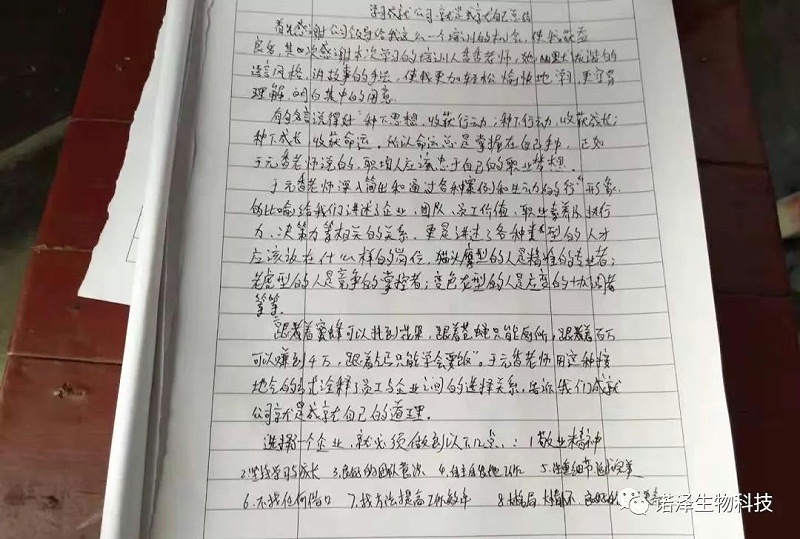 成就公司就是成就自己
首先感谢公司领导给我这么一个培训的机会,使我获益
良多,其次感谢本次学习的培训人香香老师,她幽默诙谐的
语言风格,讲故事的手法,使我更加轻松愉快地学习,更容易
理解,明白其中的用意.
有句名言说得好"种下思想,收获行动;种下行动,收获成长;
种下成长,收获命运。所以命运总是掌握在自己手中,正如
于元香老师说的,职场人应该忠于自己的职业梦想.
于元香老师深入简出和通过各种案例和生动的 形象
的比喻给我们讲述了企业,团队,员工价值,职业素养及执行
力,决策力等相关的关系,更是讲述了各种类型的人才
应该放在什么样的岗位,猫头鹰型的人是精准的专业者;
老虎型的人是竞争的掌控者;变色龙型的人是应变的协调者
等等.
"跟着蜜蜂可以找到花朵,跟着苍蝇只能厕所,跟着百万
可以赚到十万,跟着乞丐只能学会要饭".于元香老师用这种接
地气的方式诠释了员工与企业之间的选择关系.告诉我们成就
公司就是成就自己的道理.
选择一个企业,就必须做到以下几点:1敬业精神
2.坚持学习与成长 3.良好的团队意识 4.自主自发地工作 5.注重细节 追求完美
6.不找任何借口 7.找方法提高工作效率 8.
诺泽生物科技